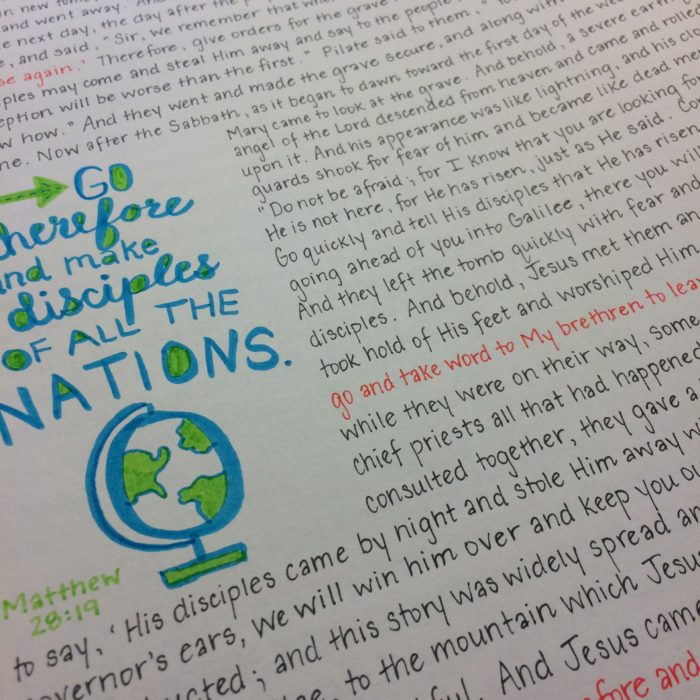 in new tomb, 
and went away. And
e next day, the day after the p
e, and said, "Sir, we remember that w
se again.' Therefore, give orders for the grave
ples may come and steal Him away and say to the people
eption will be worse than the first." Pilate said to them,
w how." And they went and made the grave secure, and along with
ne. Now after the Sabbath, as it began to dawn toward the first day of the we
Mary came to look at the grave. And behold, a severe earth
angel of the Lord descended from heaven and came and rolle
upon it. And his appearance was like lightning, and his clo
guards shook for fear of him and became like dead me
"Do not be afraid; for I know that you are looking fo
He is not here, for He has risen, just as He said. Co
Go quickly and tell His disciples that He has risen
going ahead of you into Galilee, there you wil
And they left the tomb quickly with fear and
disciples. And behold, Jesus met them an
took hold of His feet and worshiped Him
go and take word to My brethren to leav
while they were on their way, some
chief priests all that had happened
consulted together, they gave a
GO
therefore
and make
disciples
OF ALL THE
NATIONS.
Matthew
28:19
to say, 'His disciples came by night and stole Him away wh
overnor's ears, we will win him over and keep you o
ructed; and this story was widely spread am
ee, to the mountain which Jesu
ful. And Jesus cam
efore and